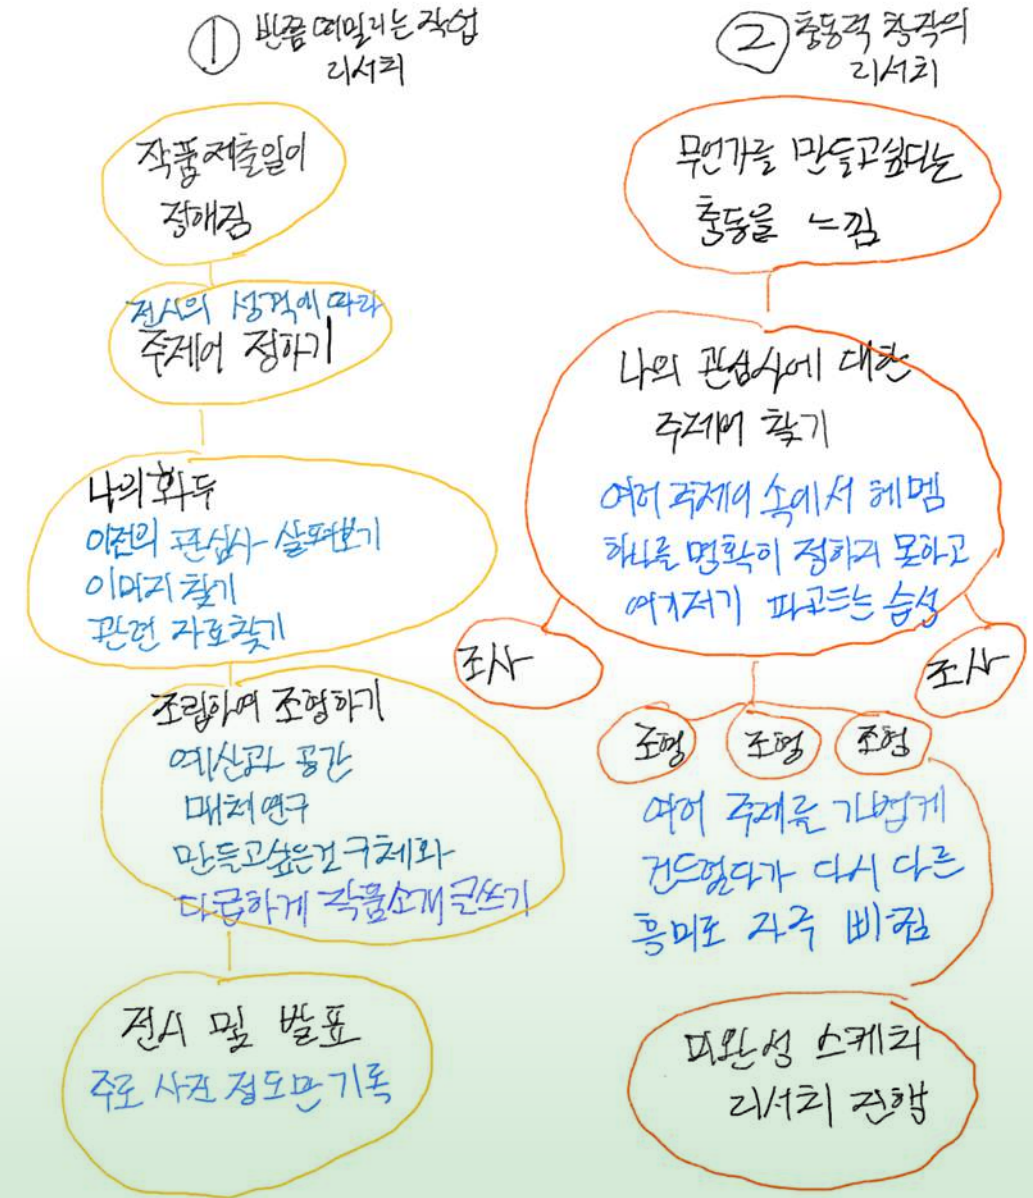 ① 반쯤 떠밀리는 작업
리서치
작품 제출일이
정해짐
전시의 성격에 따라
주제어 정하기
나의 화두
이전의 관심사 살펴보기
이미지 찾기
관련 자료찾기
조립하여 조형하기
예산과 공간
매체 연구
만들고싶은건 구체화
다급하게 작품소개 글쓰기
전시 및 발표
주로 사진 정도만 기록
② 충동적 창작의
리서치
무언가를 만들고싶다는
충동을 느낌
나의 관심사에 대한
주제어 찾기
여러 주제어 속에서 헤멤
하나를 명확히 정하지 못하고
여기저기 파고드는 습성
조사
조사
조형 조형 조형
여러 주제를 가볍게
건드렸다가 다시 다른
흥미로 자주 삐침
미완성 스케치
리서치 진행